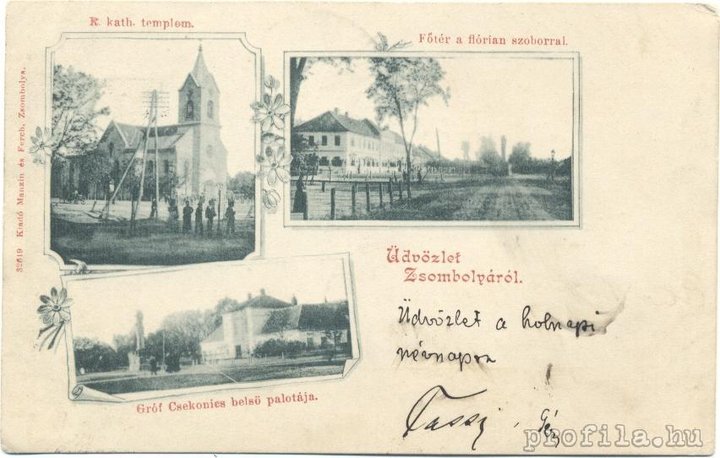 R. kath. templom.
Főtér a flórian szoborral.
32619 Kiadó Manzin és Ferch, Zsombolya.
Üdvözlet
Zsombolyáról.
Üdvözlet a holnapi
névnapon
Gróf Csekonics belső palotája.
Tassi Géz
profila.hu